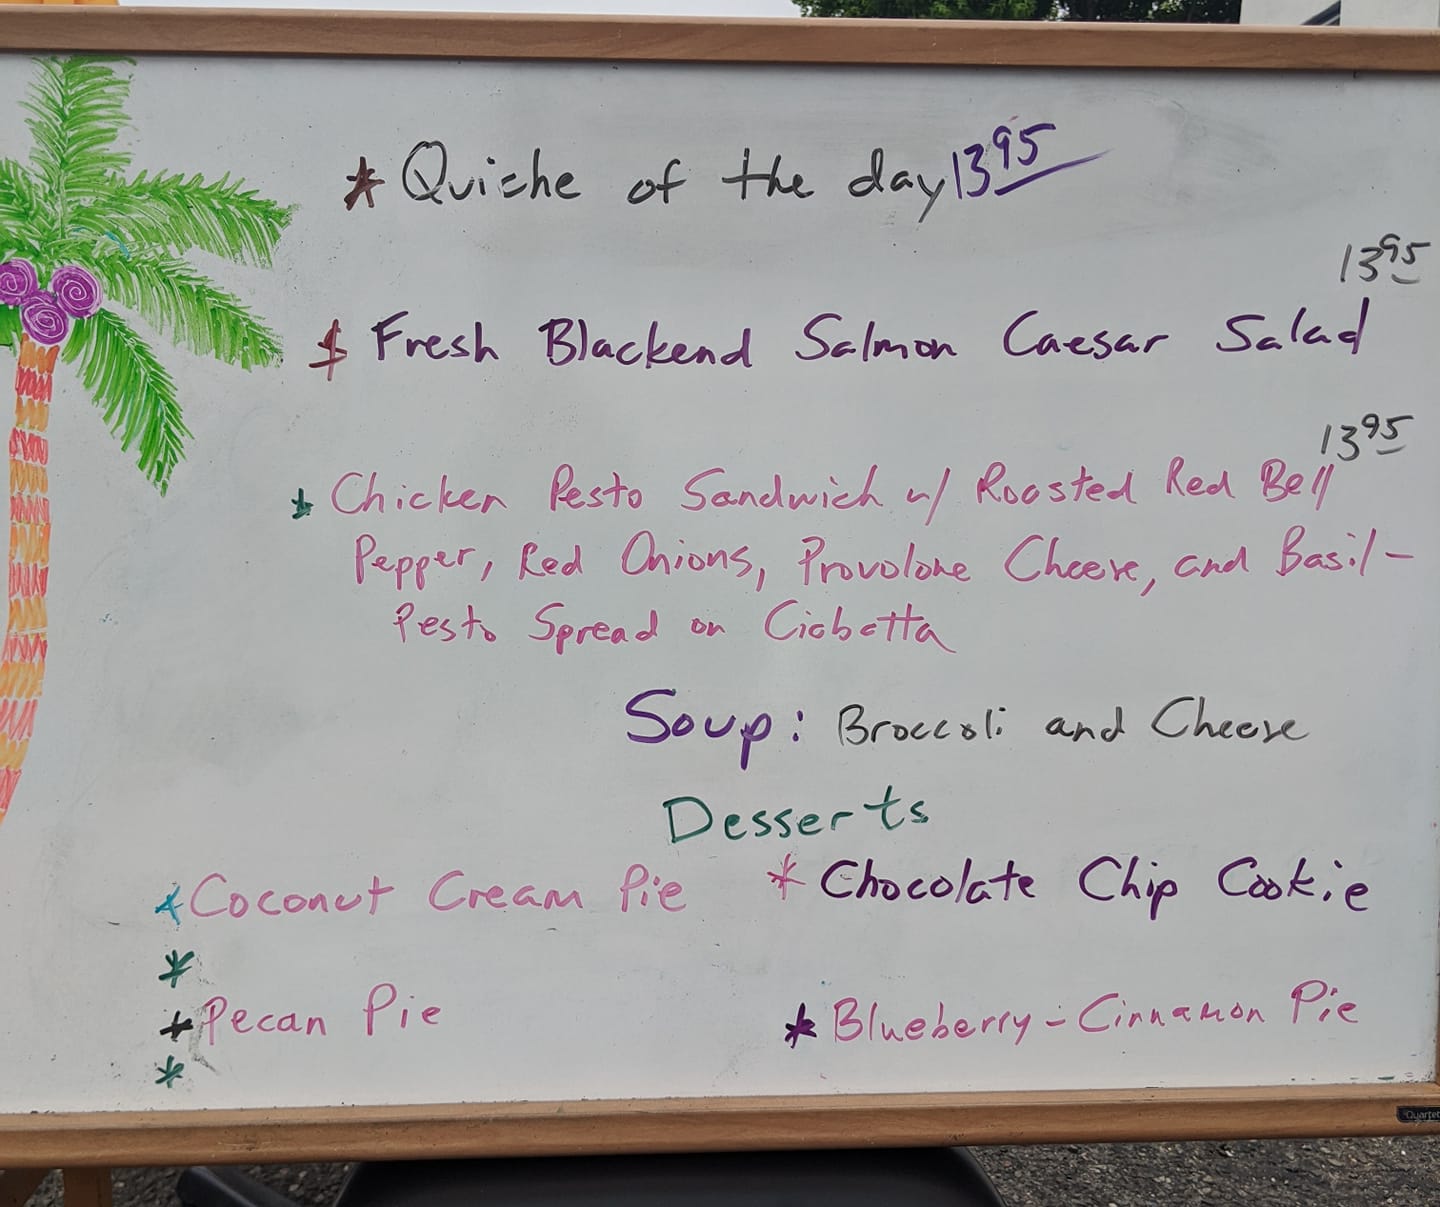 * Quiche of the day 13 95
13 95
* Fresh Blackend Salmon Caesar Salad
13 95
* Chicken Pesto Sandwich w/ Roasted Red Bell
Pepper, Red Onions, Provolone Cheese, and Basil-
Pesto Spread on Ciabatta
Soup: Broccoli and Cheese
Desserts
* Coconut Cream Pie * Chocolate Chip Cookie
*
* Pecan Pie * Blueberry-Cinnamon Pie
*
Quartet